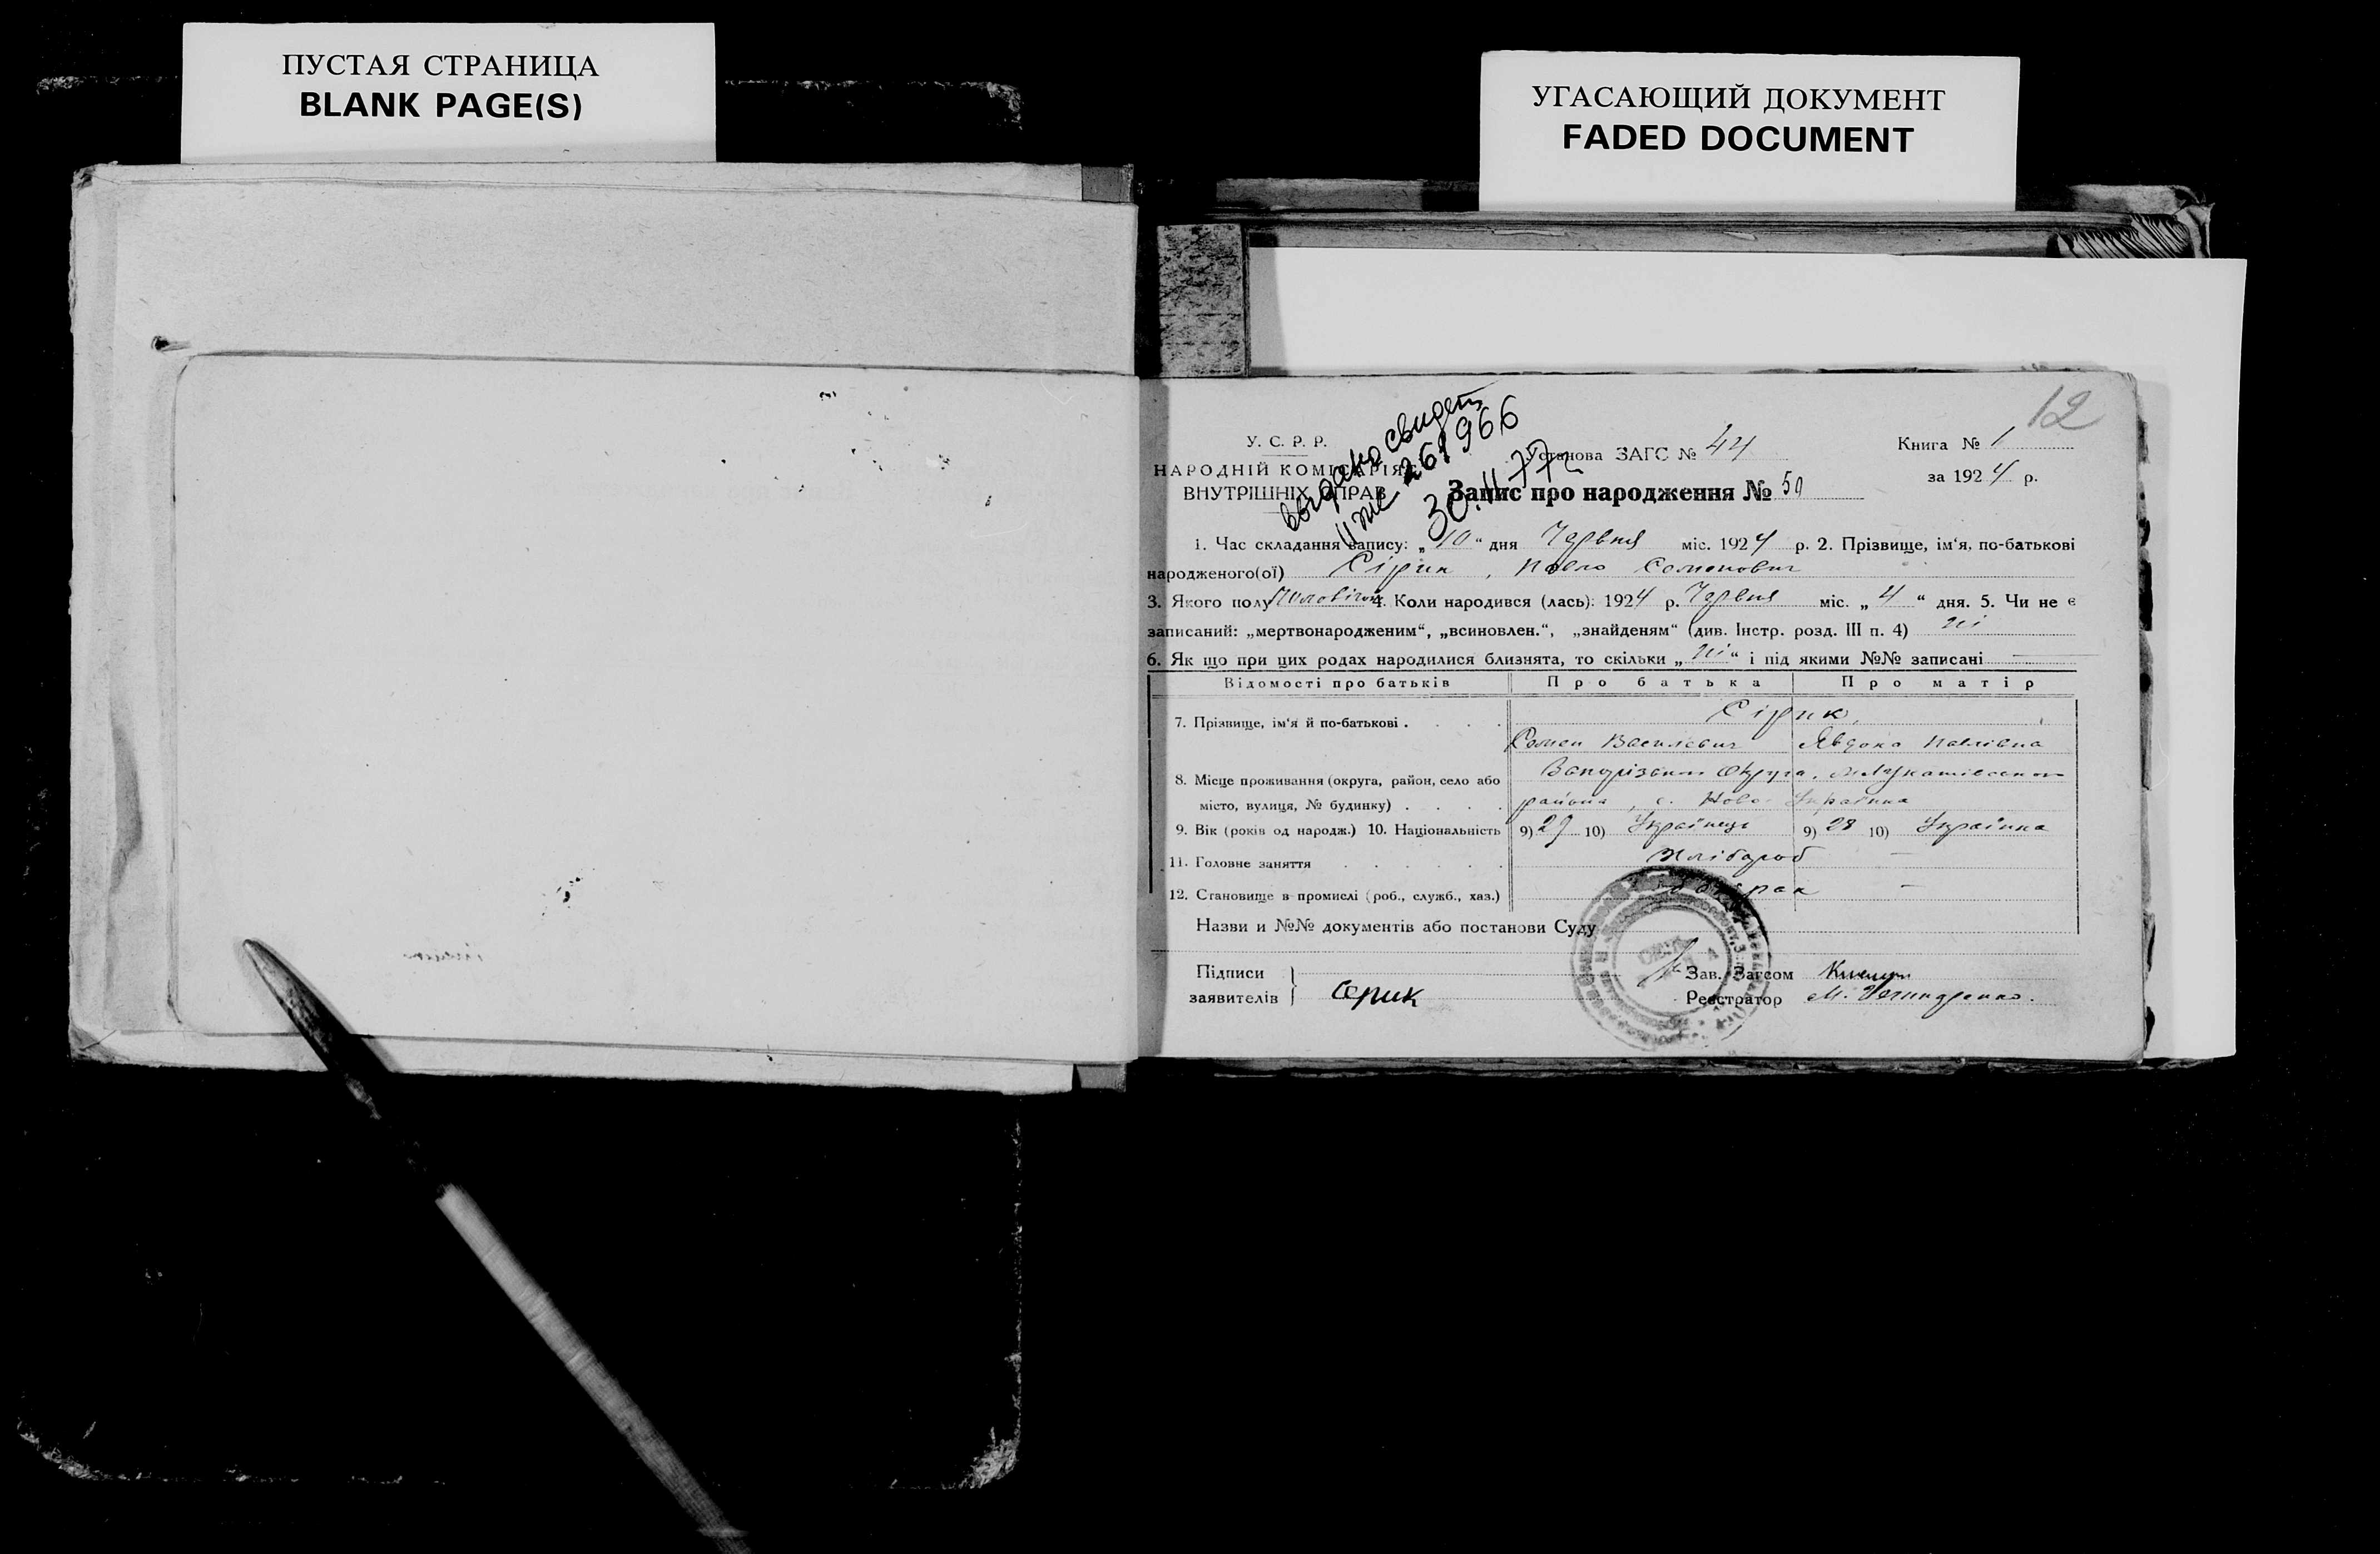 ПУСТАЯ СТРАНИЦА
BLANK PAGE(S)
УГАСАЮЩИЙ ДОКУМЕНТ
FADED DOCUMENT
12
выдано свидет
261966
30.11.77г
У. С. Р. Р.
НАРОДНІЙ КОМІСАРІЯТ
ВНУТРІШНІХ СПРАВ
Установа ЗАГС № 44
Книга № 1
за 1924 р.
Запис про народження № 50
1. Час складання запису: „10“ дня Червня міс. 1924 р. 2. Прізвище, ім‘я, по-батькові
народженого(ої) Сірик, Павло Семенович
3. Якого полу 4. Коли народився (лась): 1924 р. Червня міс. „4“ дня. 5. Чи не є
записаний: „мертвонародженим“, „всиновлен.“, „знайденям“ (див. Інстр. розд. III п. 4) ні
6. Як що при цих родах народилися близнята, то скільки „ні“ і під якими №№ записані —
Відомості про батьків Про батька Про матір
7. Прізвище, ім‘я й по-батькові . Сірик,
Семен Василевич Явдоха Павлівна
8. Місце проживання (округа, район, село або Округа,
місто, вулиця, № будинку) . района, с. Ново-Украінка
9. Вік (років од народж.) 10. Національність 9) 29 10) Українець 9) 28 10) Українка
11. Головне заняття Хлібороб —
12. Становище в промислі (роб., служб., хаз.) —
Назви и №№ документів або постанови Суду
Підписи
заявителів } Сірик
Зав. Загсом
Реєстратор М.